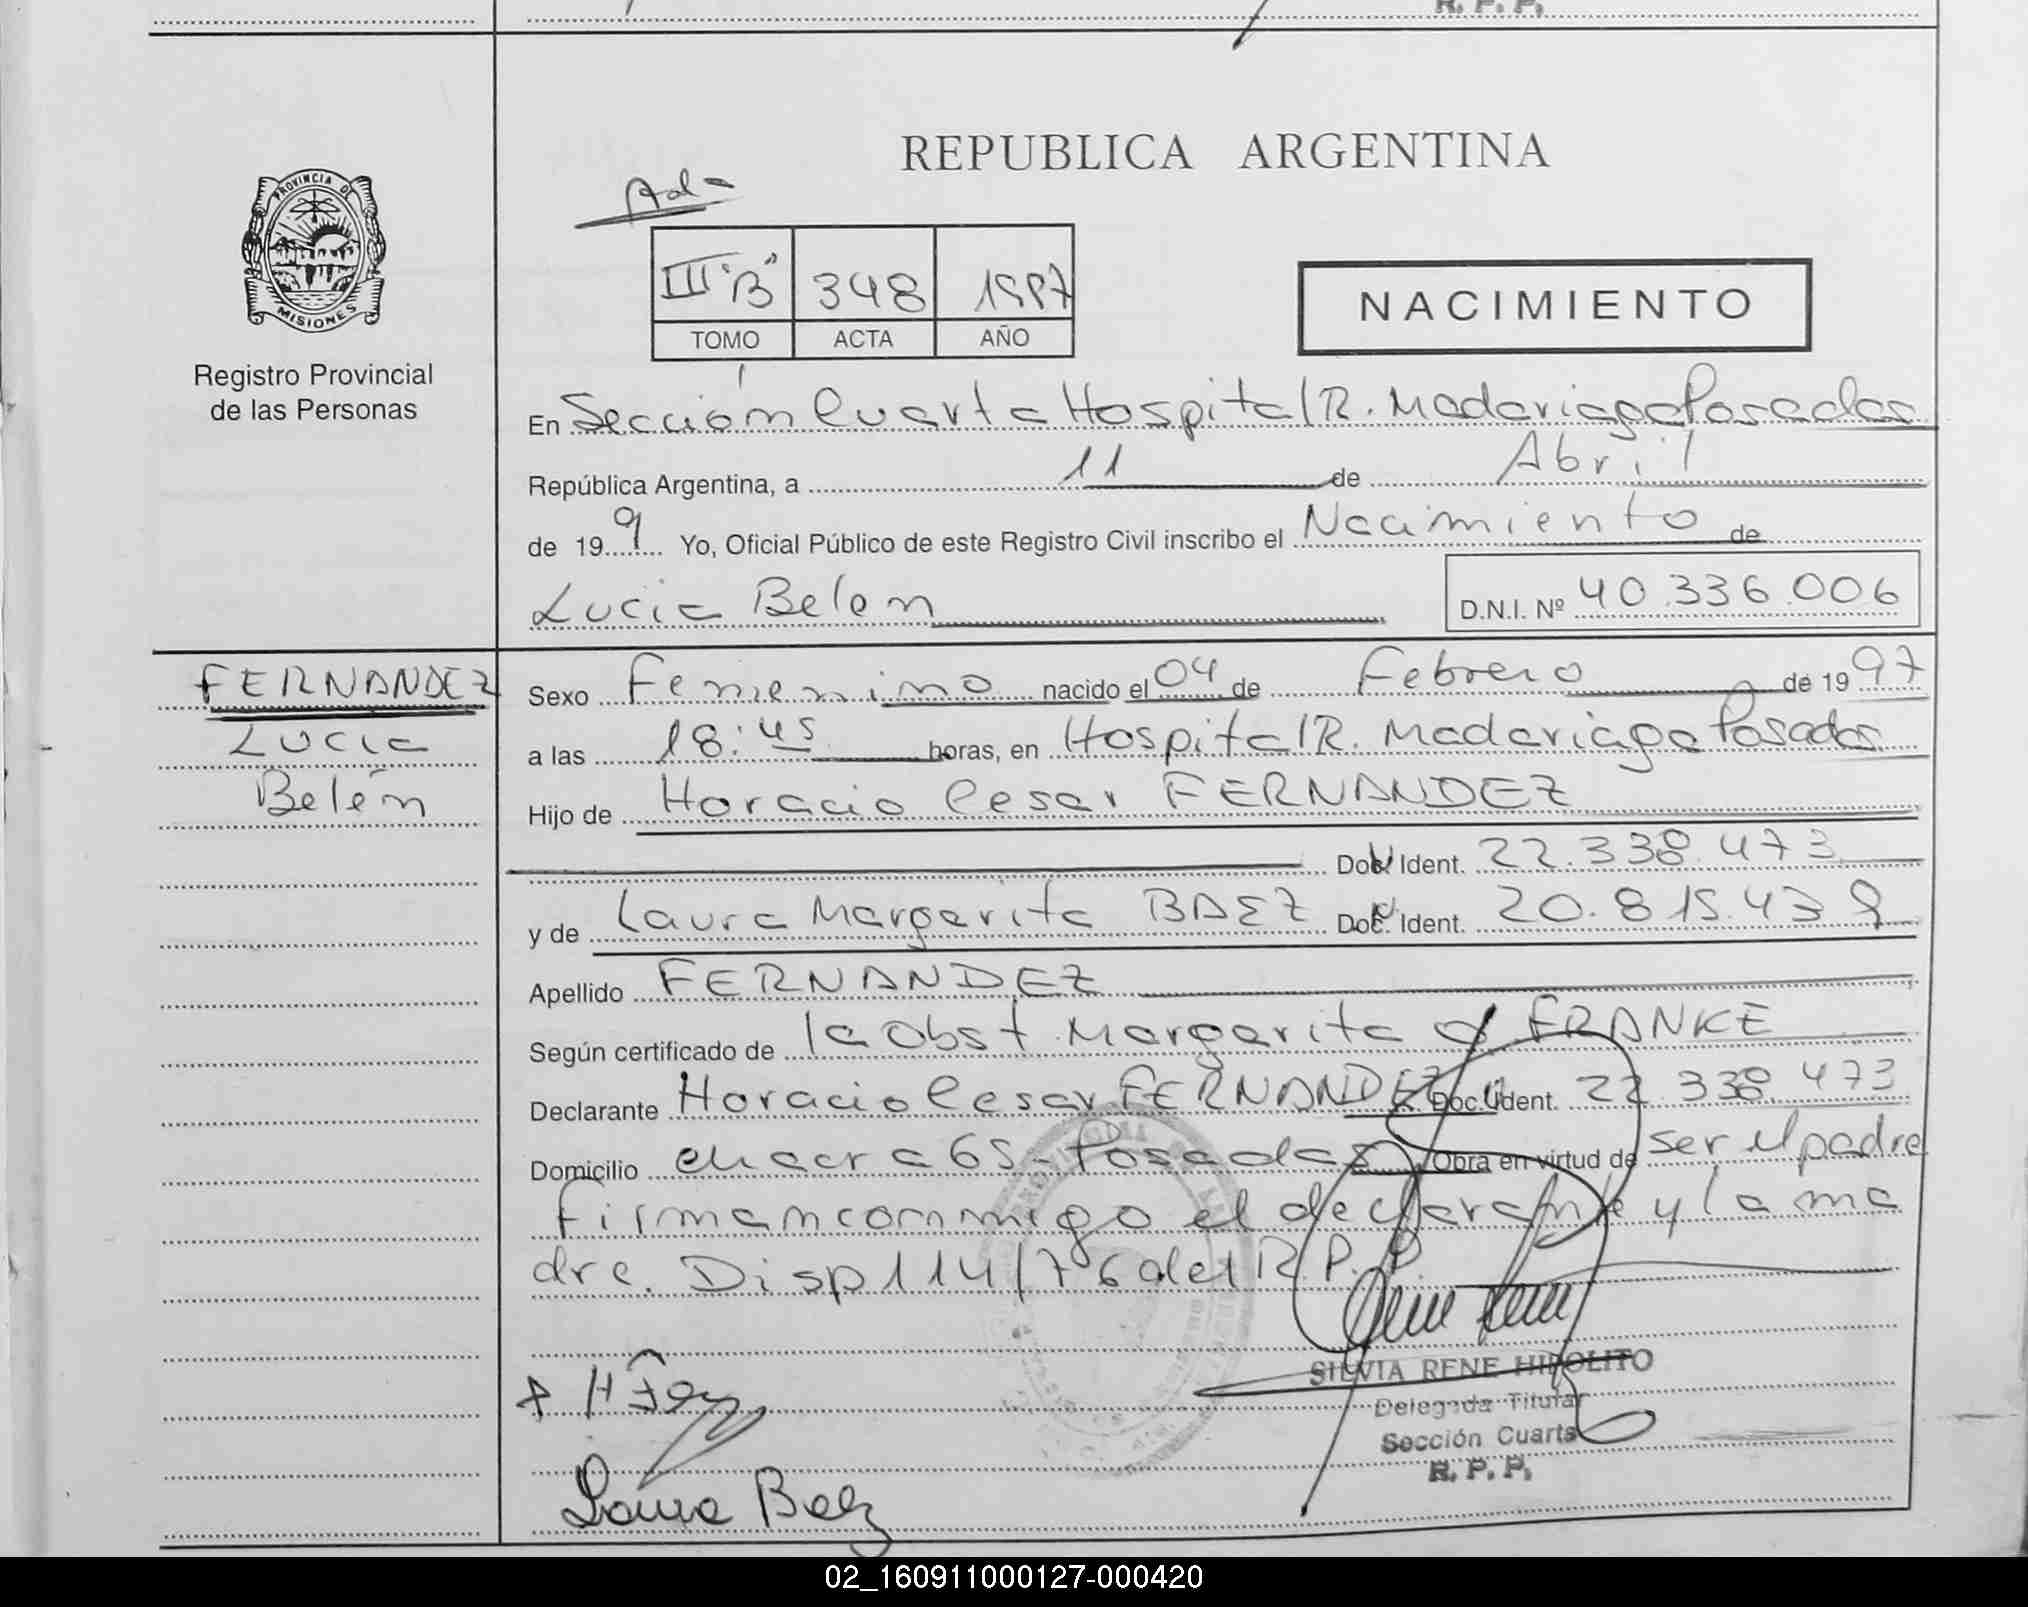 R. P. P.
REPUBLICA ARGENTINA
PROVINCIA DE
MISIONES
Registro Provincial
de las Personas
III "B" 348 1997
TOMO ACTA AÑO
NACIMIENTO
En Sección Cuarta Hospital R. Madariaga Posadas
República Argentina, a 11 de Abril
de 199 Yo, Oficial Público de este Registro Civil inscribo el Nacimiento de
Lucia Belen D.N.I. Nº 40.336.006
FERNANDEZ
Lucia
Belén
Sexo Femenino nacido el 04 de Febrero de 1997
a las 18:45 horas, en Hospital R. Madariaga Posadas
Hijo de Horacio Cesar FERNANDEZ
Doc. Ident. 22.338.473
y de Laura Margarita BAEZ Doc. Ident. 20.815.439
Apellido FERNANDEZ
Según certificado de la Obst. Margarita d FRANKE
Declarante Horacio Cesar FERNANDEZ Doc. Ident. 22.338.473
Domicilio chacra 65 - Posadas Obra en virtud de ser el padre
firman conmigo el declarante y la ma
dre. Disp 114/76 del R.P.P.
SILVIA RENE HIPOLITO
Delegada Titular
Sección Cuarta
R. P. P.
Laura Baez
02_160911000127-000420